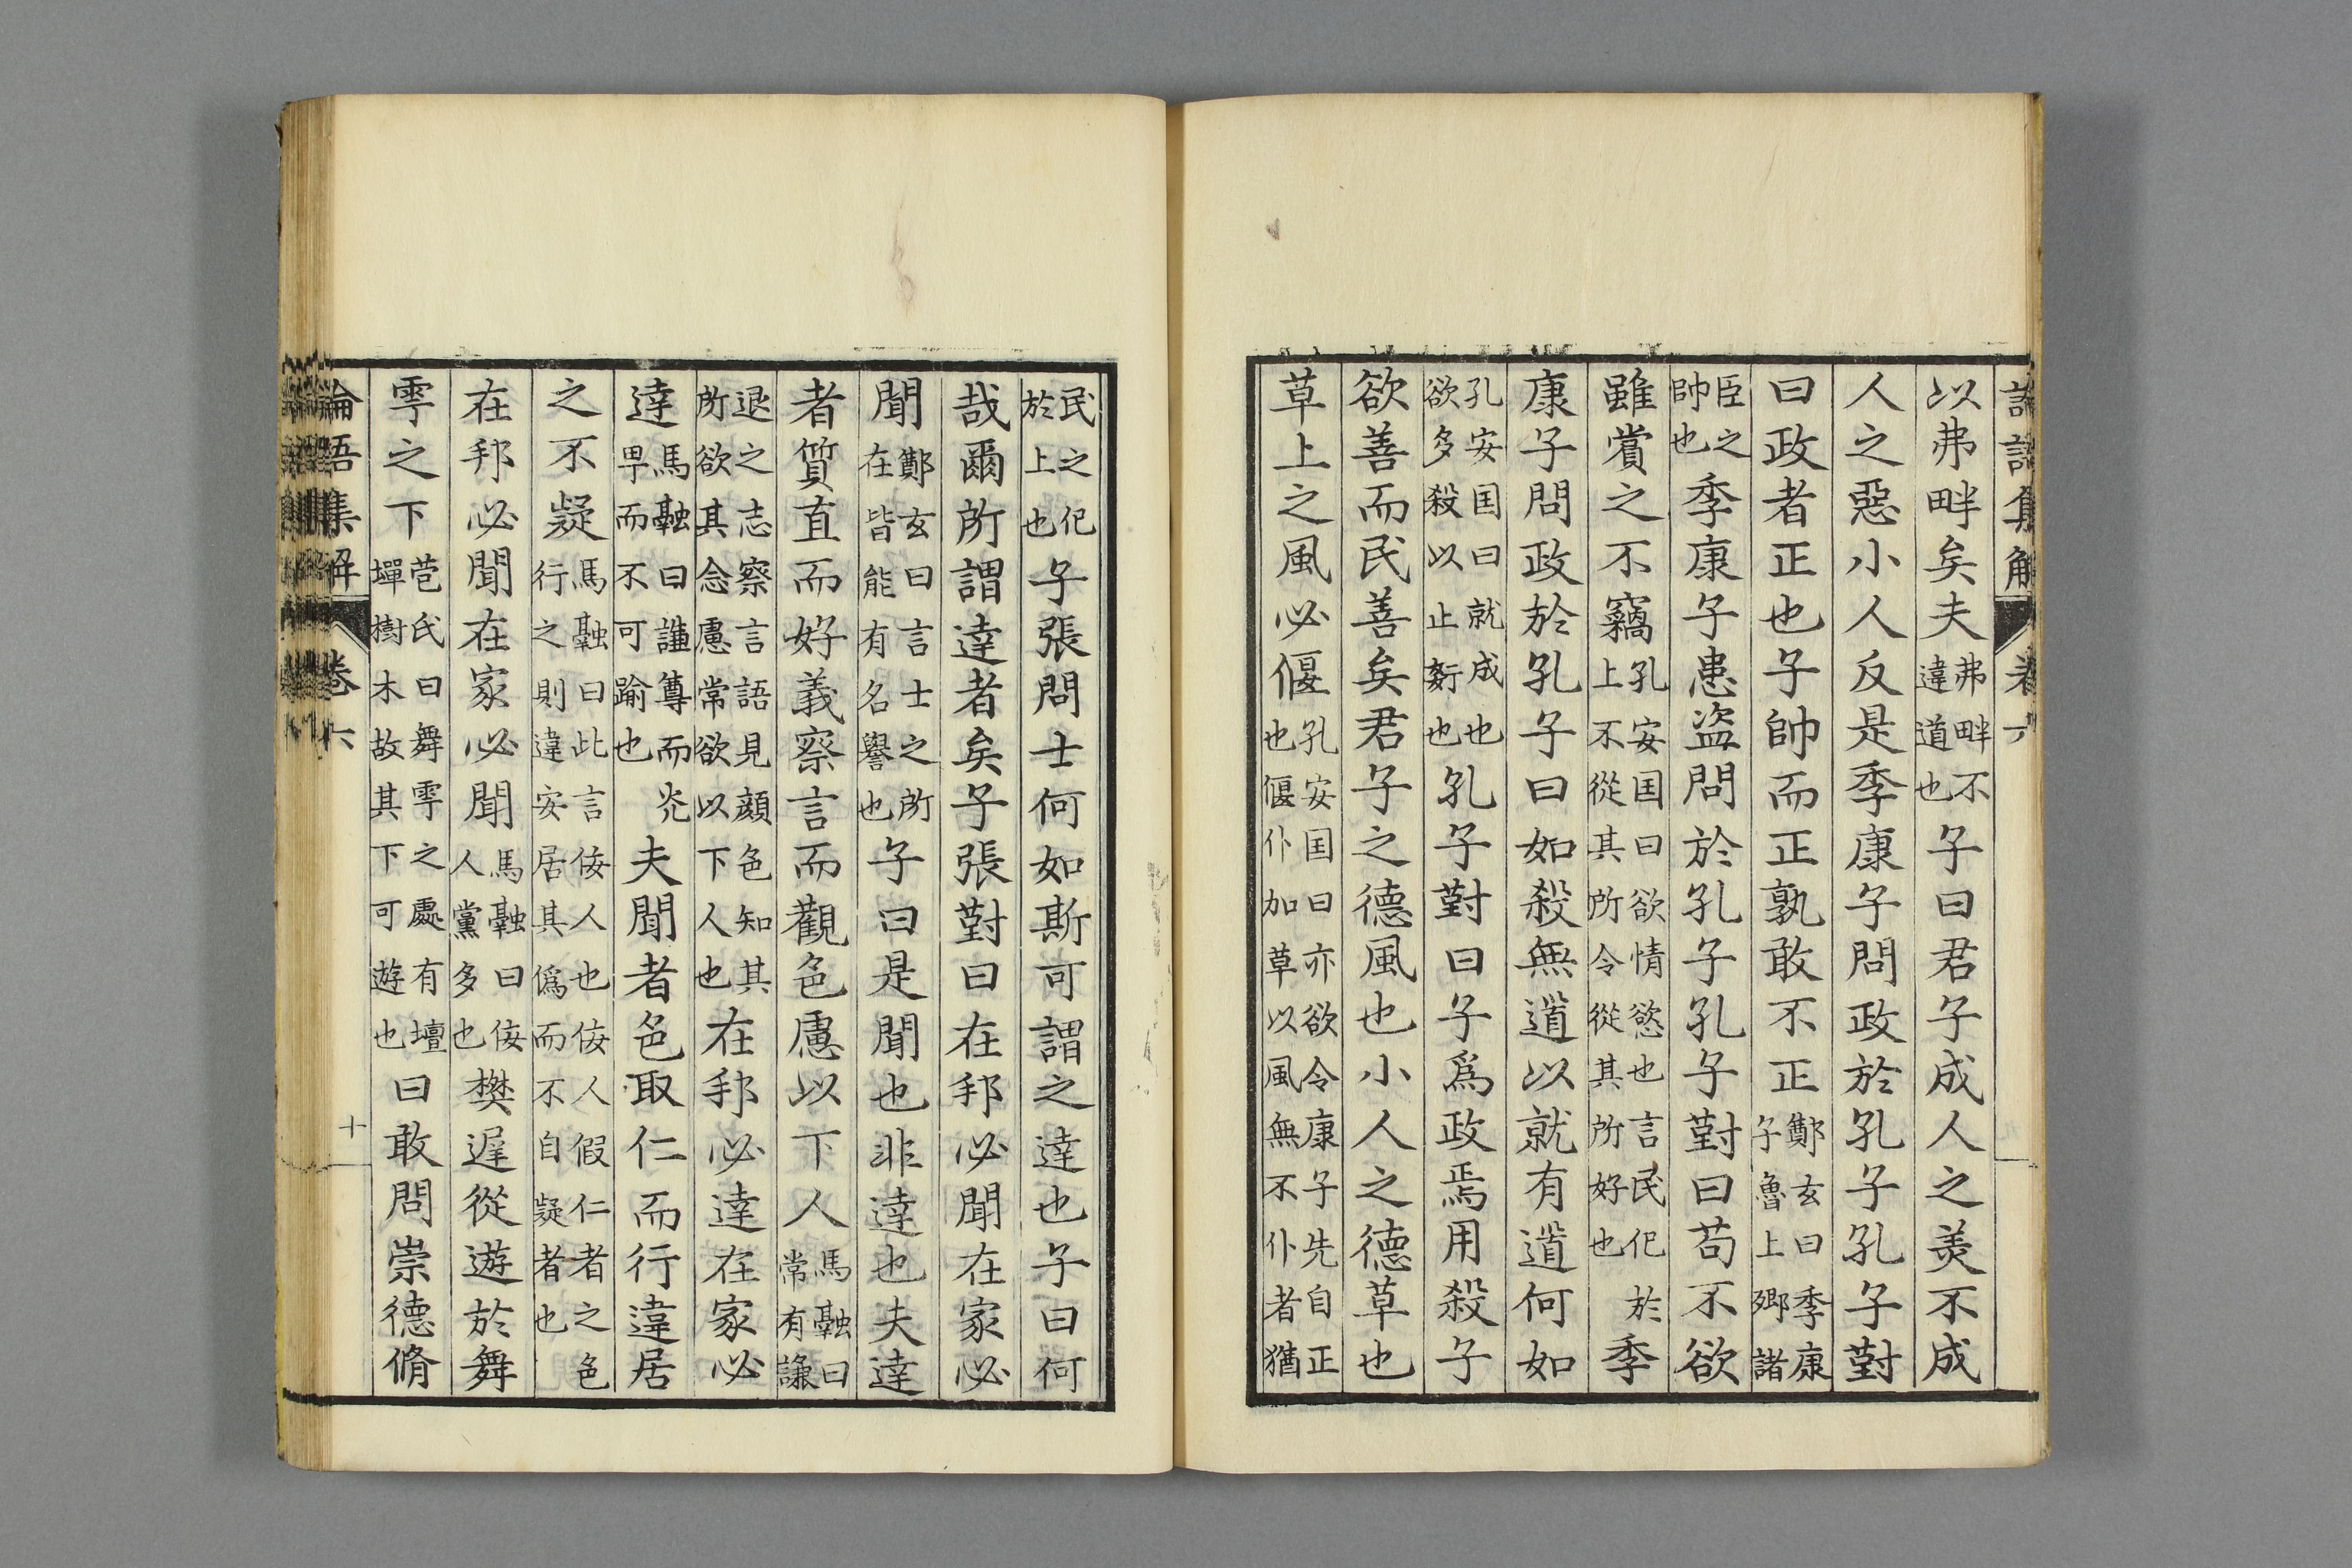 論語集解 卷六
以弗畔矣夫弗畔不違道也子曰君子成人之羙不成
人之惡小人反是季康子問政於孔子孔子對
曰政者正也子帥而正孰敢不正鄭玄曰季康子魯上卿諸
臣之帥也季康子患盗問於孔子孔子對曰苟不欲
雖賞之不竊孔安囯曰欲情慾也言民化於上不從其所令從其所好也季
康子問政於孔子曰如殺無道以就有道何如
孔安囯曰就成也欲多殺以止姧也孔子對曰子爲政焉用殺子
欲善而民善矣君子之德風也小人之德草也
草上之風必偃孔安囯曰亦欲令康子先自正也偃仆加草以風無不仆者猶
民之化於上也子張問士何如斯可謂之達也子曰何
哉爾所謂達者矣子張對曰在邦必聞在家必
聞鄭玄曰言士之所在皆能有名譽也子曰是聞也非達也夫達
者質直而好義察言而觀色慮以下人馬融曰常有謙
退之志察言語見顔色知其所欲其念慮常欲以下人也在邦必達在家必
達馬融曰謙尊而光卑而不可踰也夫聞者色取仁而行違居
之不疑馬融曰此言佞人也佞人假仁者之色行之則違安居其僞而不自疑者也
在邦必聞在家必聞馬融曰佞人黨多也樊遲從遊於舞
雩之下苞氏曰舞雩之處有壇墠樹木故其下可遊也曰敢問崇德脩
論語集解 卷六 十